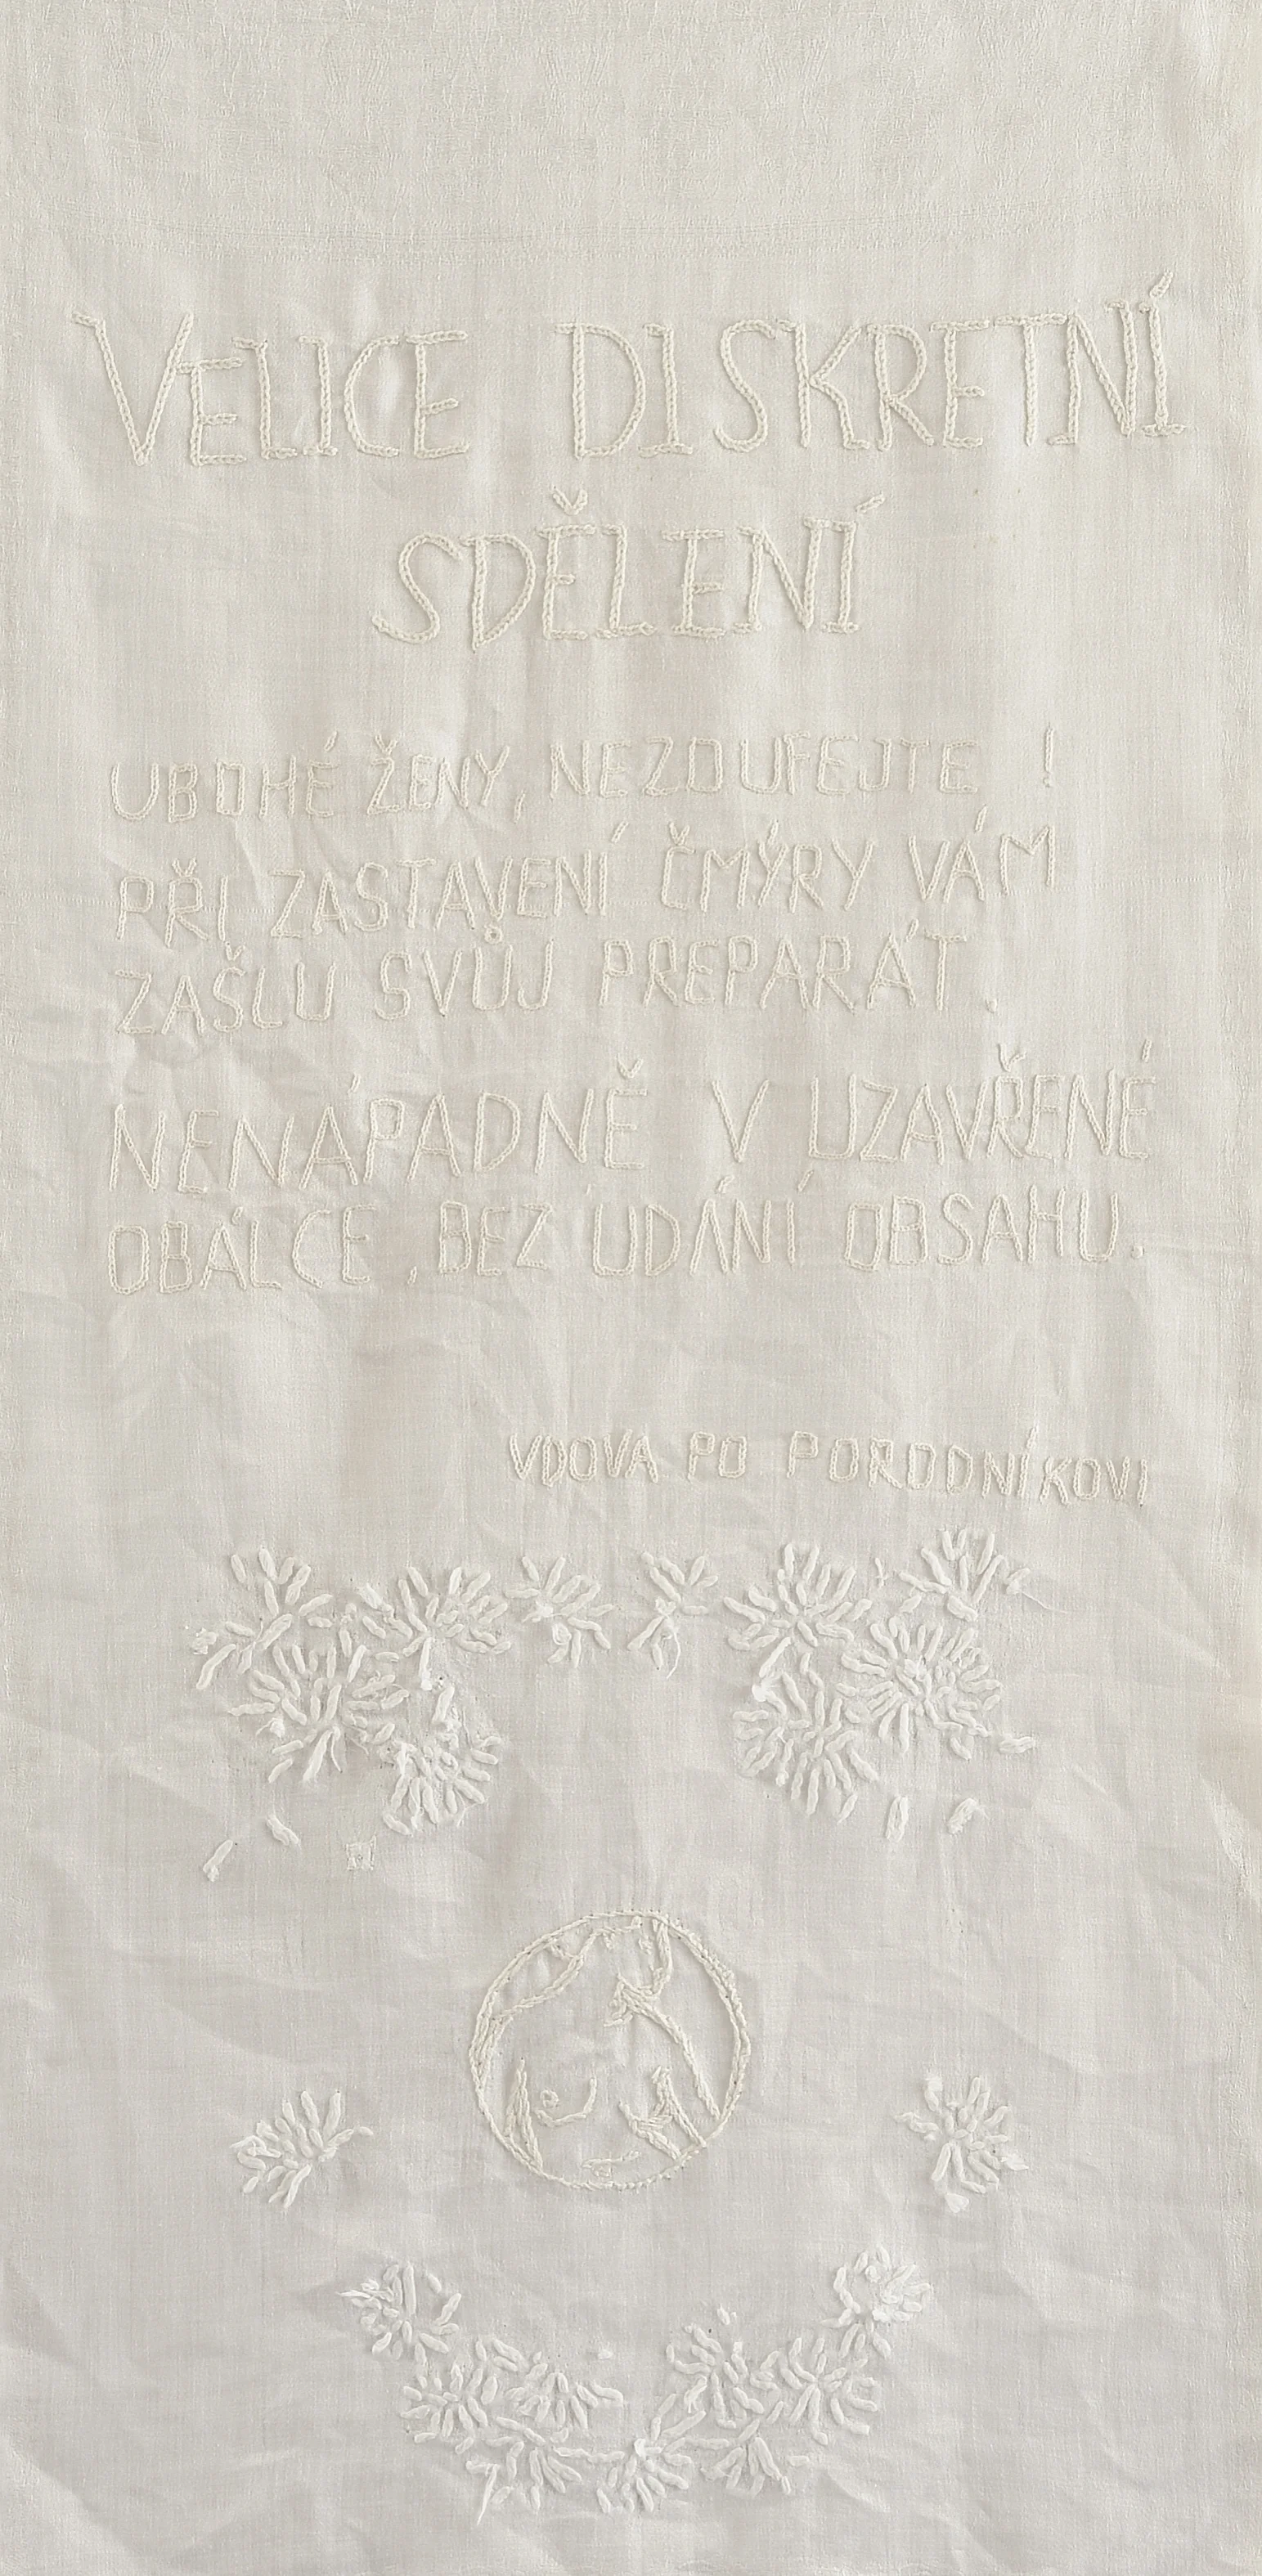 VELICE DISKRETNÍ
SDĚLENÍ
UBOHÉ ŽENY, NEZOUFEJTE !
PŘI ZASTAVENÍ ČMÝRY VÁM
ZAŠLU SVŮJ PREPARÁT.
NENÁPADNĚ V UZAVŘENÉ
OBÁLCE, BEZ ÚDÁNÍ OBSAHU.
VDOVA PO PORODNÍKOVI